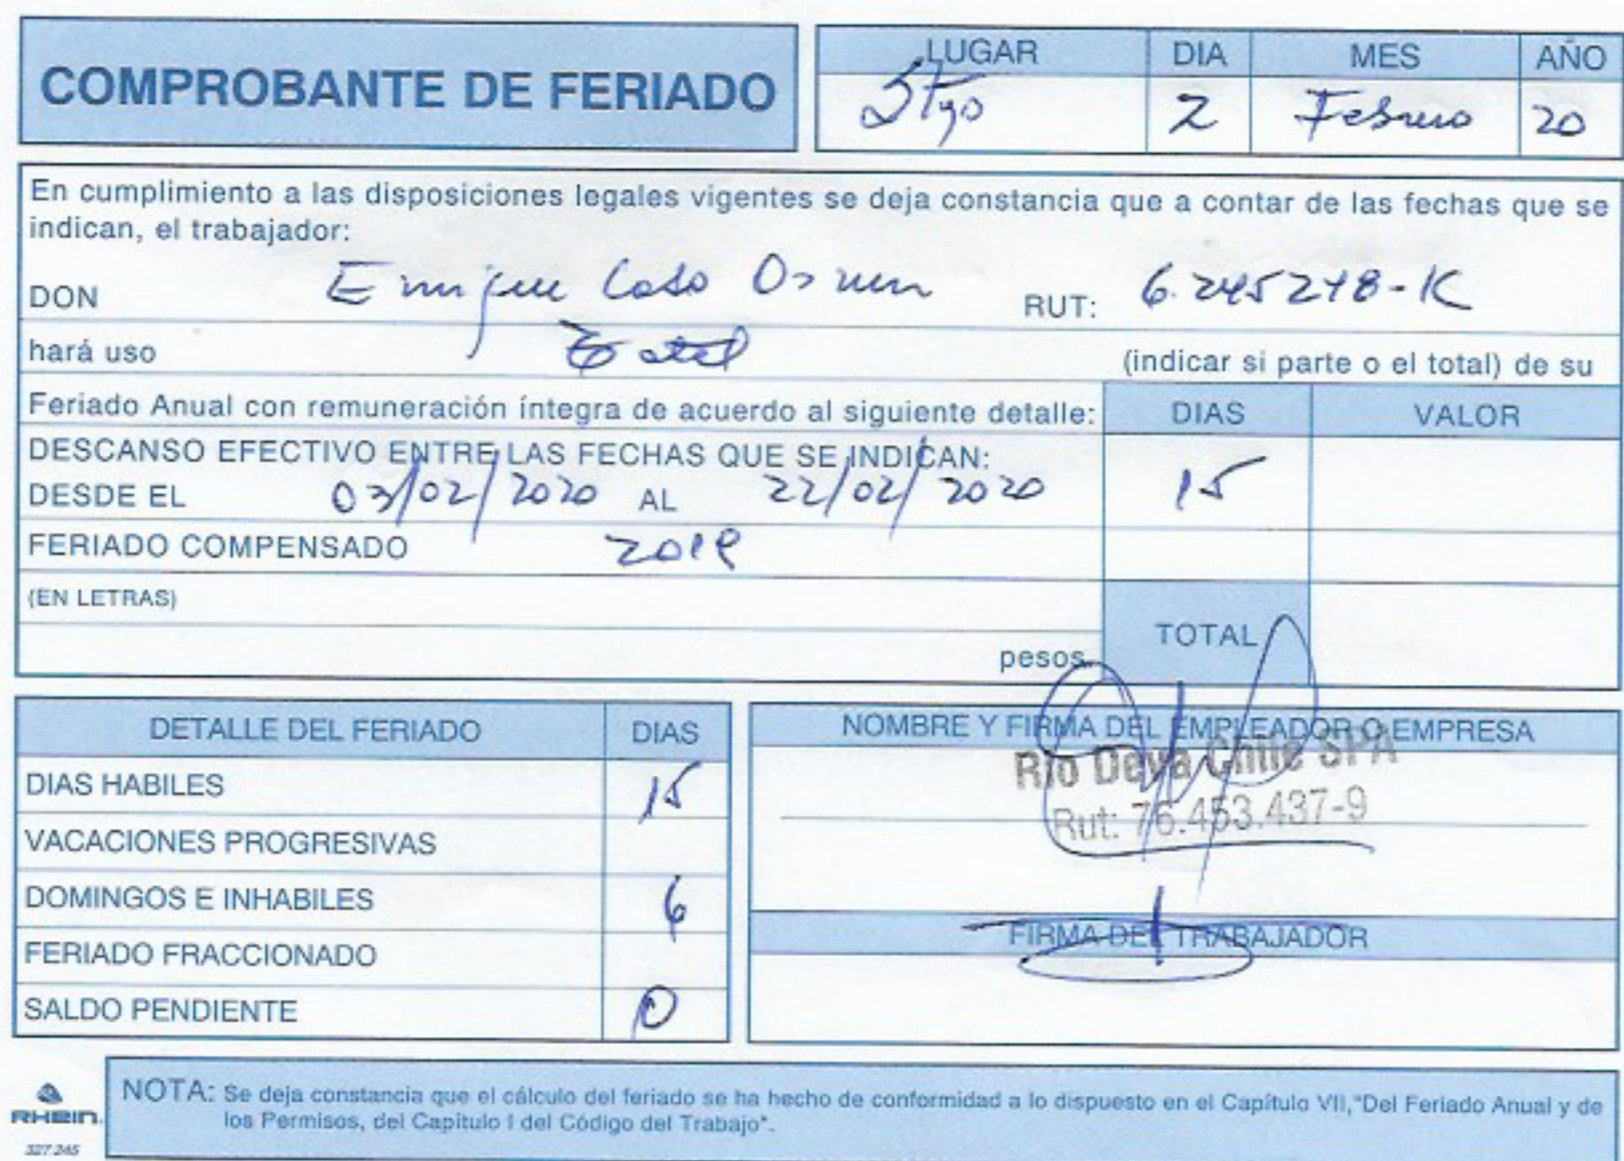 COMPROBANTE DE FERIADO
LUGAR DIA MES AÑO
Stgo 2 Febrero 20
En cumplimiento a las disposiciones legales vigentes se deja constancia que a contar de las fechas que se
indican, el trabajador:
DON Enrique RUT:
hará uso Total (indicar si parte o el total) de su
Feriado Anual con remuneración íntegra de acuerdo al siguiente detalle: DIAS VALOR
DESCANSO EFECTIVO ENTRE LAS FECHAS QUE SE INDICAN:
DESDE EL 03/02/2020 AL 22/02/2020 15
FERIADO COMPENSADO 2019
(EN LETRAS)
pesos. TOTAL
DETALLE DEL FERIADO DIAS
DIAS HABILES 15
VACACIONES PROGRESIVAS
DOMINGOS E INHABILES 6
FERIADO FRACCIONADO
SALDO PENDIENTE 0
NOMBRE Y FIRMA DEL EMPLEADOR O EMPRESA
Rio Deva Chile SPA
Rut: 76.453.437-9
FIRMA DEL TRABAJADOR
RHEIN
327 245
NOTA: Se deja constancia que el cálculo del feriado se ha hecho de conformidad a lo dispuesto en el Capítulo VII,"Del Feriado Anual y de
los Permisos, del Capítulo I del Código del Trabajo".